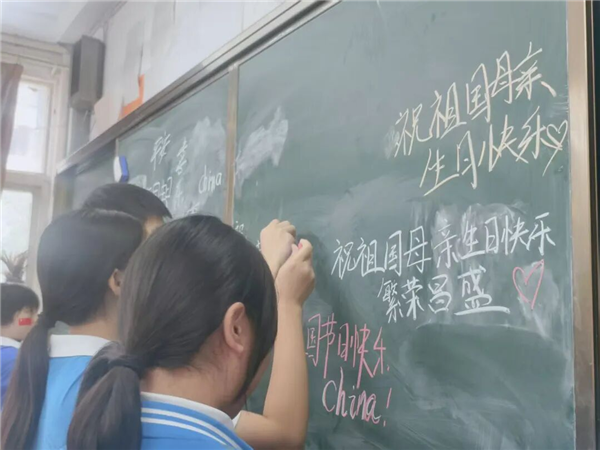 祝祖国母亲
生日快乐♡
祝祖国母亲生日快乐
繁荣昌盛♡
国节日快乐
China!
China